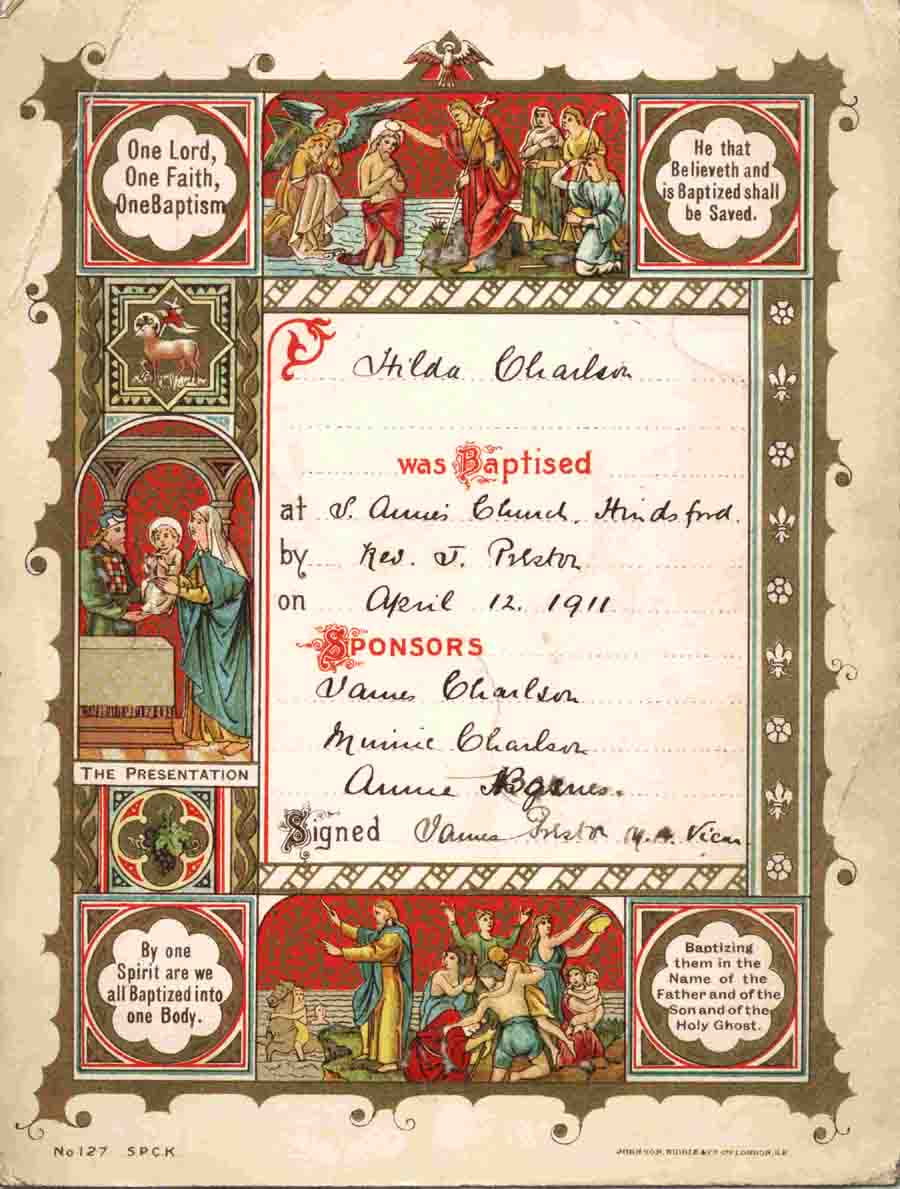 One Lord,
One Faith,
One Baptism
He that
Believeth and
is Baptized shall
be Saved.
Hilda Charlson
was Baptised
at S. Anne's Church, Hindsford.
by Rev. J. Preston
on April 12. 1911
SPONSORS
James Charlson
Minnie Charlson
Annie
Signed James Preston M.A. Vicar
THE PRESENTATION
By one
Spirit are we
all Baptized into
one Body.
Baptizing
them in the
Name of the
Father and of the
Son and of the
Holy Ghost.
No 127 S.P.C.K.
JOHNSON, RIDDLE & Co LONDON, S.E.